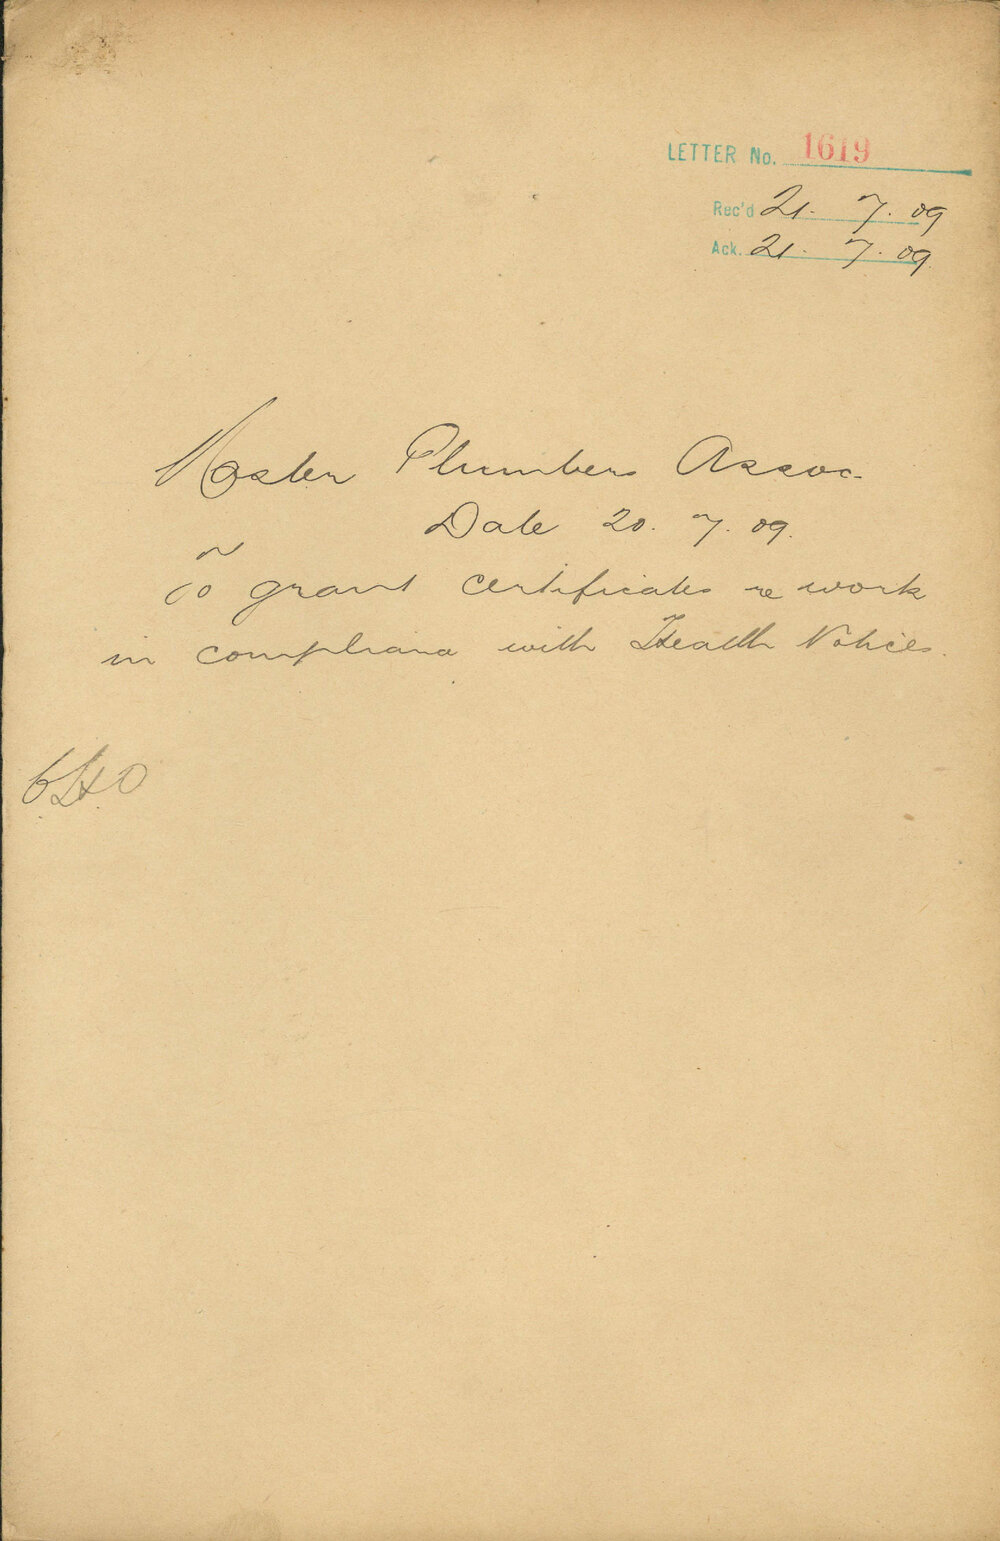 LETTER No. 1619
Rec'd 21. 7. 09
Ack. 21. 7. 09.
Master Plumbers Assoc.
Date 20. 7. 09.
To grant certificates re work
in compliance with Health Notices.
CHO